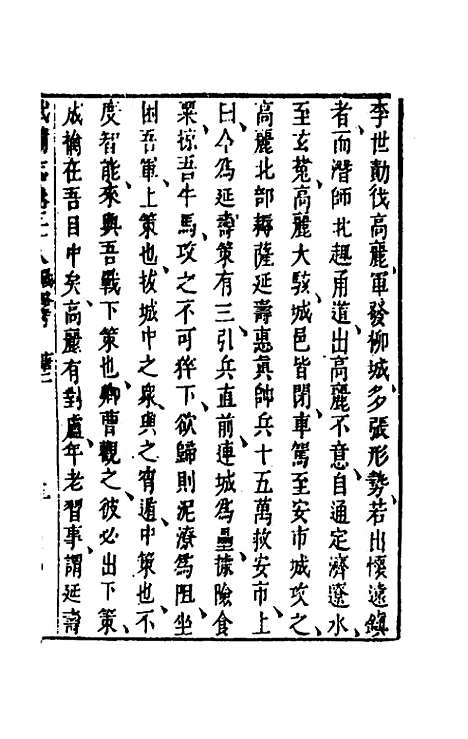 李世勣伐高麗軍發柳城多張形勢若出懷遠鎮
者而潛師北趣甬道出高麗不意自通定濟遼水
至玄菟高麗大駭城邑皆閉車駕至安市城攻之
高麗北部耨薩延壽惠真帥兵十五萬救安市上
曰今爲延壽策有三引兵直前連城爲壘據險食
粟掠吾牛馬攻之不可猝下欲歸則泥潦爲阻坐
困吾軍上策也拔城中之衆與之宵遁中策也不
度智能來與吾戰下策也卿曹觀之彼必出下策
成擒在吾目中矣高麗有對盧年老習事謂延壽
武備志卷三十八